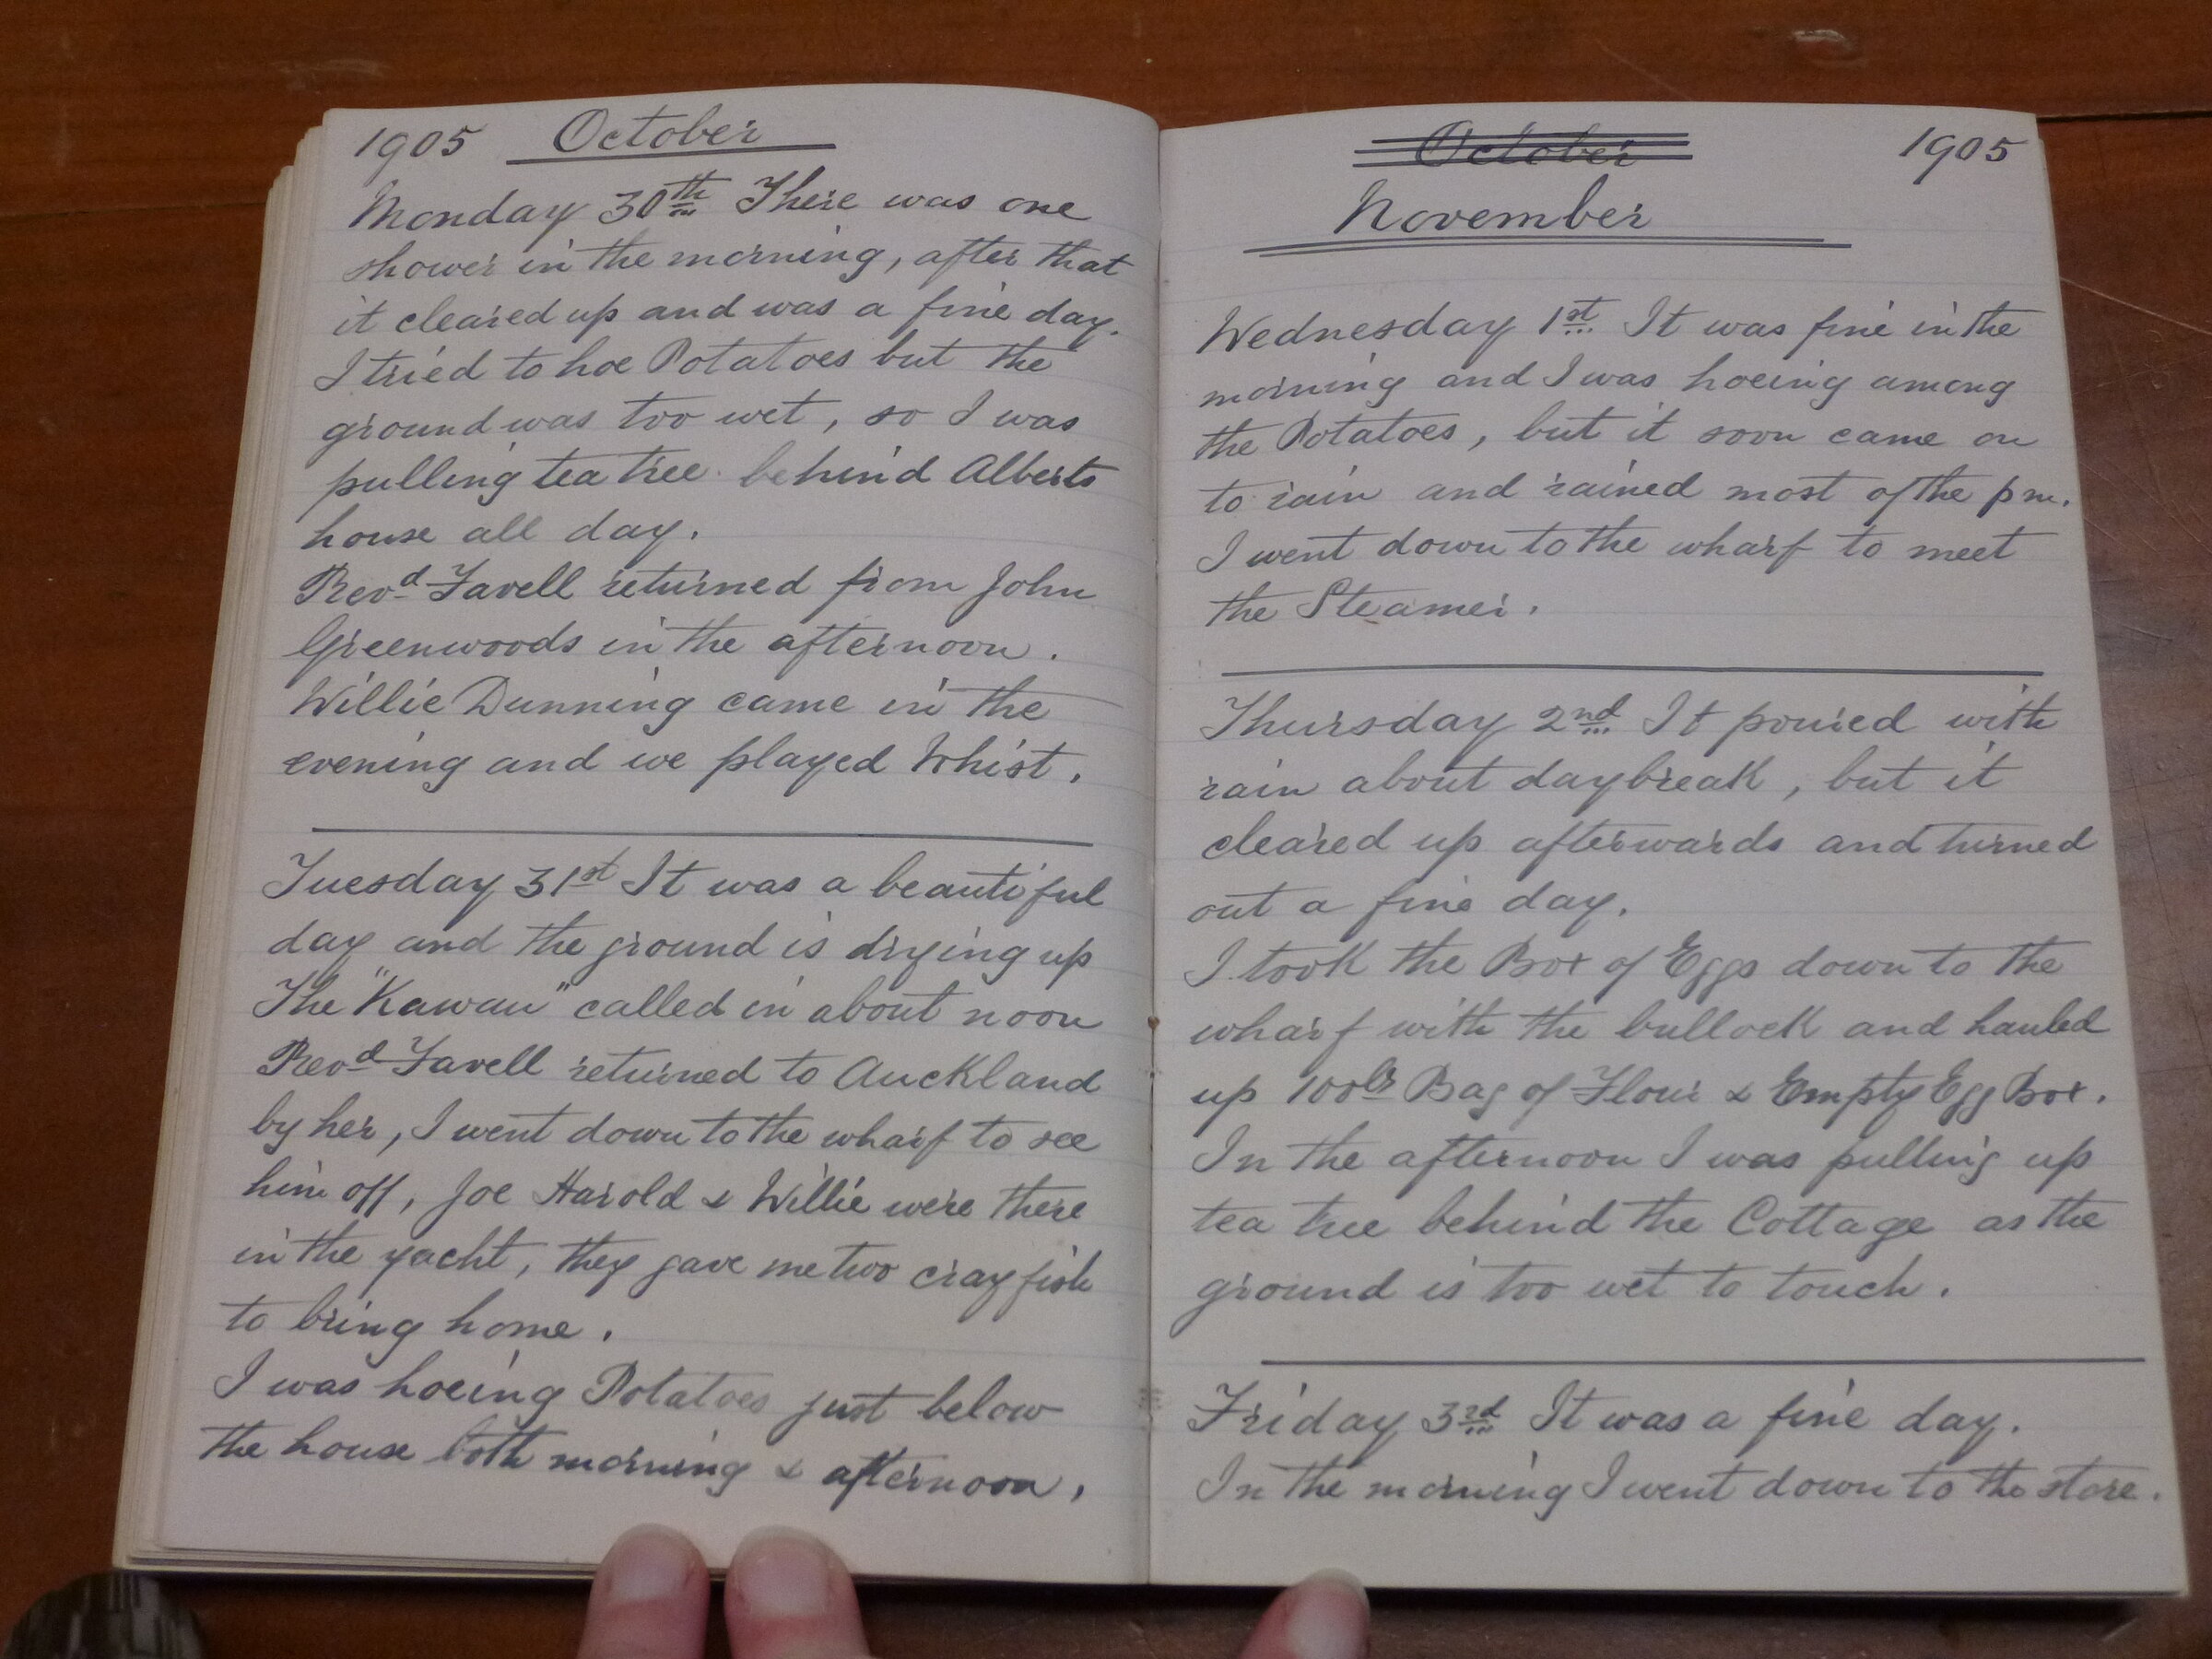 1905 October
Monday 30th There was one
shower in the morning, after that
it cleared up and was a fine day.
I tried to hoe Potatoes but the
ground was too wet, so I was
pulling tea tree behind Alberts
house all day.
Revd Favell returned from John
Greenwoods in the afternoon.
Willie Dunning came in the
evening and we played Whist.
Tuesday 31st It was a beautiful
day and the ground is drying up
The "Kawau" called in about noon
Revd Favell returned to Auckland
by her, I went down to the wharf to see
him off, Joe Harold & Willie were there
in the yacht, they gave me two crayfish
to bring home.
I was hoeing Potatoes just below
the house both morning & afternoon,
October 1905
November
Wednesday 1st It was fine in the
morning and I was hoeing among
the Potatoes, but it soon came on
to rain and rained most of the pm.
I went down to the wharf to meet
the Steamer.
Thursday 2nd It poured with
rain about daybreak, but it
cleared up afterwards and turned
out a fine day.
I took the Box of Eggs down to the
wharf with the bullock and hauled
up 100lb Bag of Flour & Empty Egg Box.
In the afternoon I was pulling up
tea tree behind the Cottage as the
ground is too wet to touch.
Friday 3rd It was a fine day.
In the morning I went down to the store.